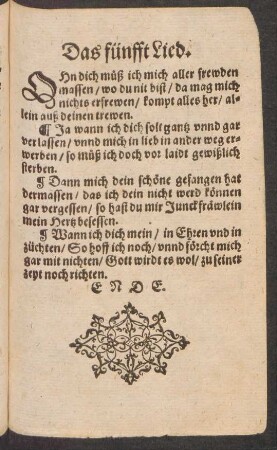 Das fünfft Lied.
OHn dich müß ich mich aller frewden
massen / wo du nit bist / da mag mich
nichts erfrewen / kompt alles her / al-
lein auß deinen trewen.
¶ Ja wann ich dich solt gantz vnnd gar
verlassen / vnnd mich in lieb in ander weg er-
werben / so müß ich doch vor laidt gewißlich
sterben.
¶ Dann mich dein schöne gefangen hat
dermassen / das ich dein nicht werd können
gar vergessen / so hast du mir Junckfräwlein
mein Hertz besessen.
¶ Wann ich dich mein / in Ehren vnd in
züchten / So hoff ich noch / vnnd förcht mich
gar mit nichten / Gott wirdt es wol / zu seiner
zeyt noch richten.
E N D E.